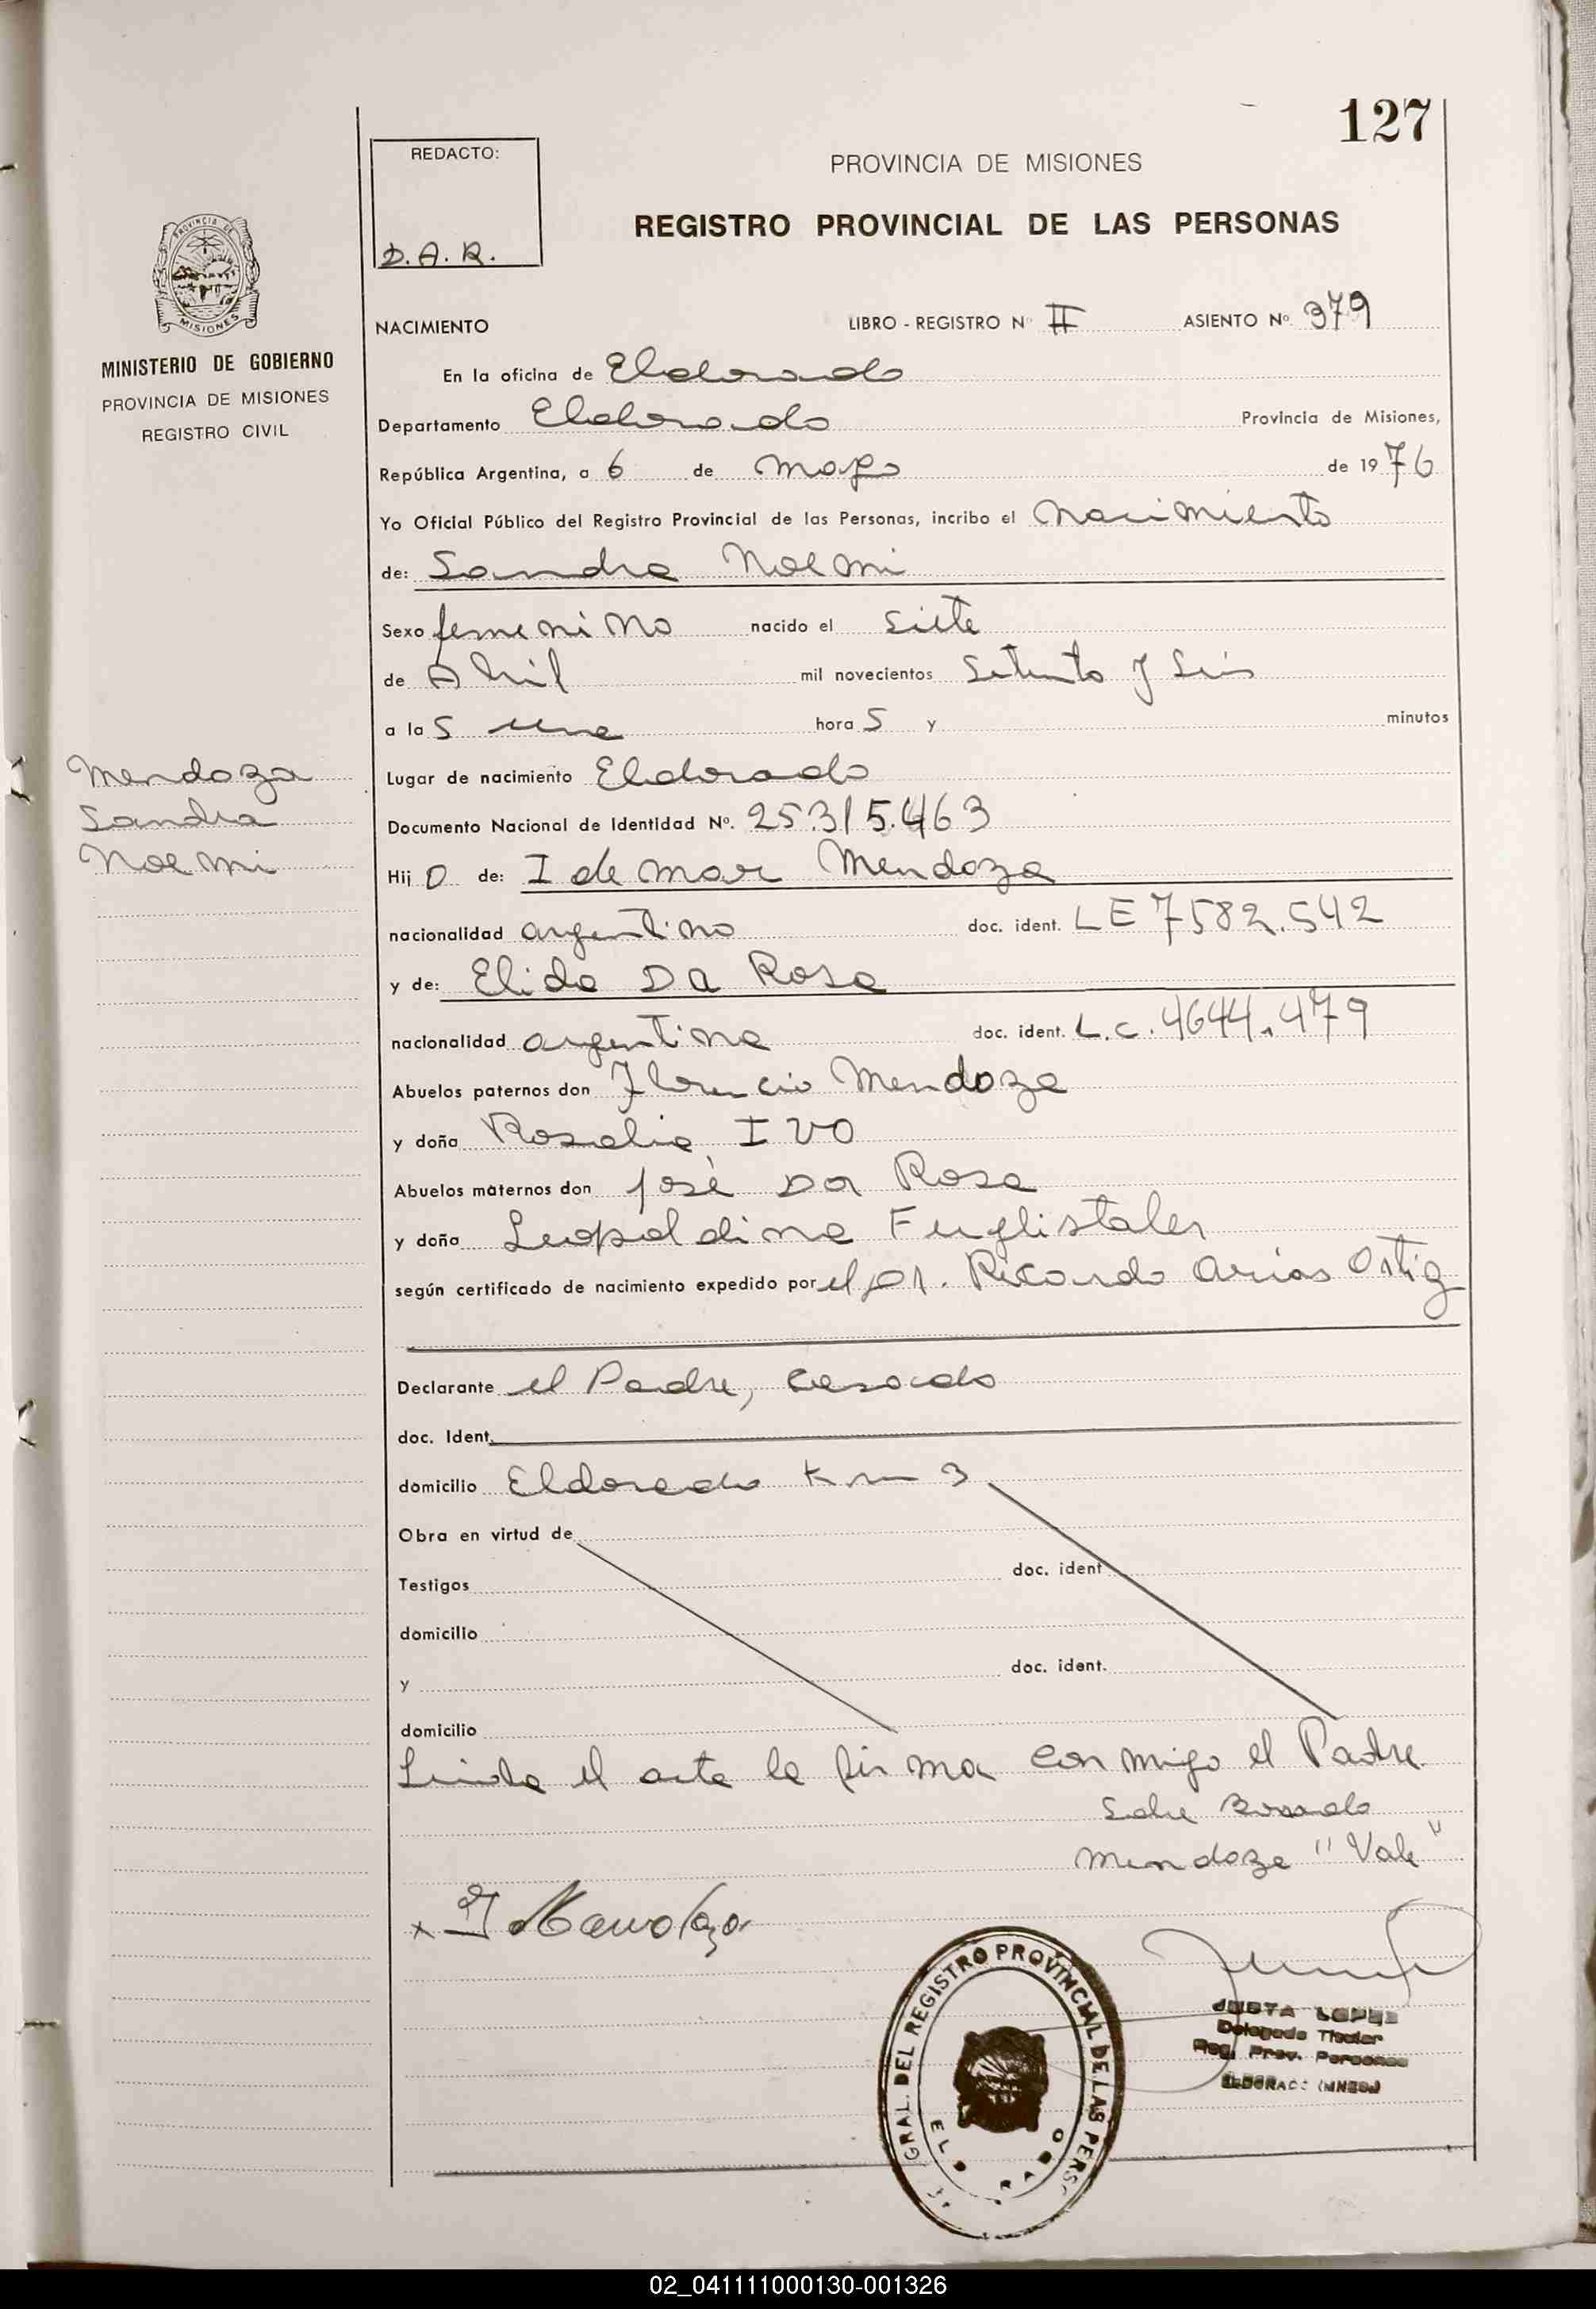 127
REDACTO:
D.A.R.
PROVINCIA DE MISIONES
REGISTRO PROVINCIAL DE LAS PERSONAS
PROVINCIA DE
MISIONES
MINISTERIO DE GOBIERNO
PROVINCIA DE MISIONES
REGISTRO CIVIL
NACIMIENTO LIBRO - REGISTRO Nº II ASIENTO Nº 379
En la oficina de Eldorado
Departamento Eldorado Provincia de Misiones,
República Argentina, a 6 de mayo de 1976
Yo Oficial Público del Registro Provincial de las Personas, incribo el nacimiento
de: Sandra Noemi
Sexo femenino nacido el siete
de Abril mil novecientos setenta y seis
a las una hora s y minutos
Mendoza
Sandra
Noemi
Lugar de nacimiento Eldorado
Documento Nacional de Identidad Nº. 25.315.463
Hij o de: Idemar Mendoza
nacionalidad argentino doc. ident. LE 7582.542
y de: Elida Da Rosa
nacionalidad argentina doc. ident. L.C. 4644.479
Abuelos paternos don Florencio Mendoza
y doña Rosalia IVO
Abuelos maternos don José Da Rosa
y doña Leopoldina Fuglistaler
según certificado de nacimiento expedido por el Dr. Ricardo Arias Ortiz
Declarante el Padre, casado
doc. Ident.
domicilio Eldorado Km 3
Obra en virtud de
Testigos doc. ident
domicilio
y doc. ident.
domicilio
Leida el acta la firma conmigo el Padre
Sobre Borrado
Mendoza "Vale"
x I Mendoza
GRAL. DEL REGISTRO PROVINCIAL DE LAS PERS
ELDORADO
JUSTA LOPEZ
Delegada Titular
Reg. Prov. Personas
ELDORADO (MNES.)
02_041111000130-001326